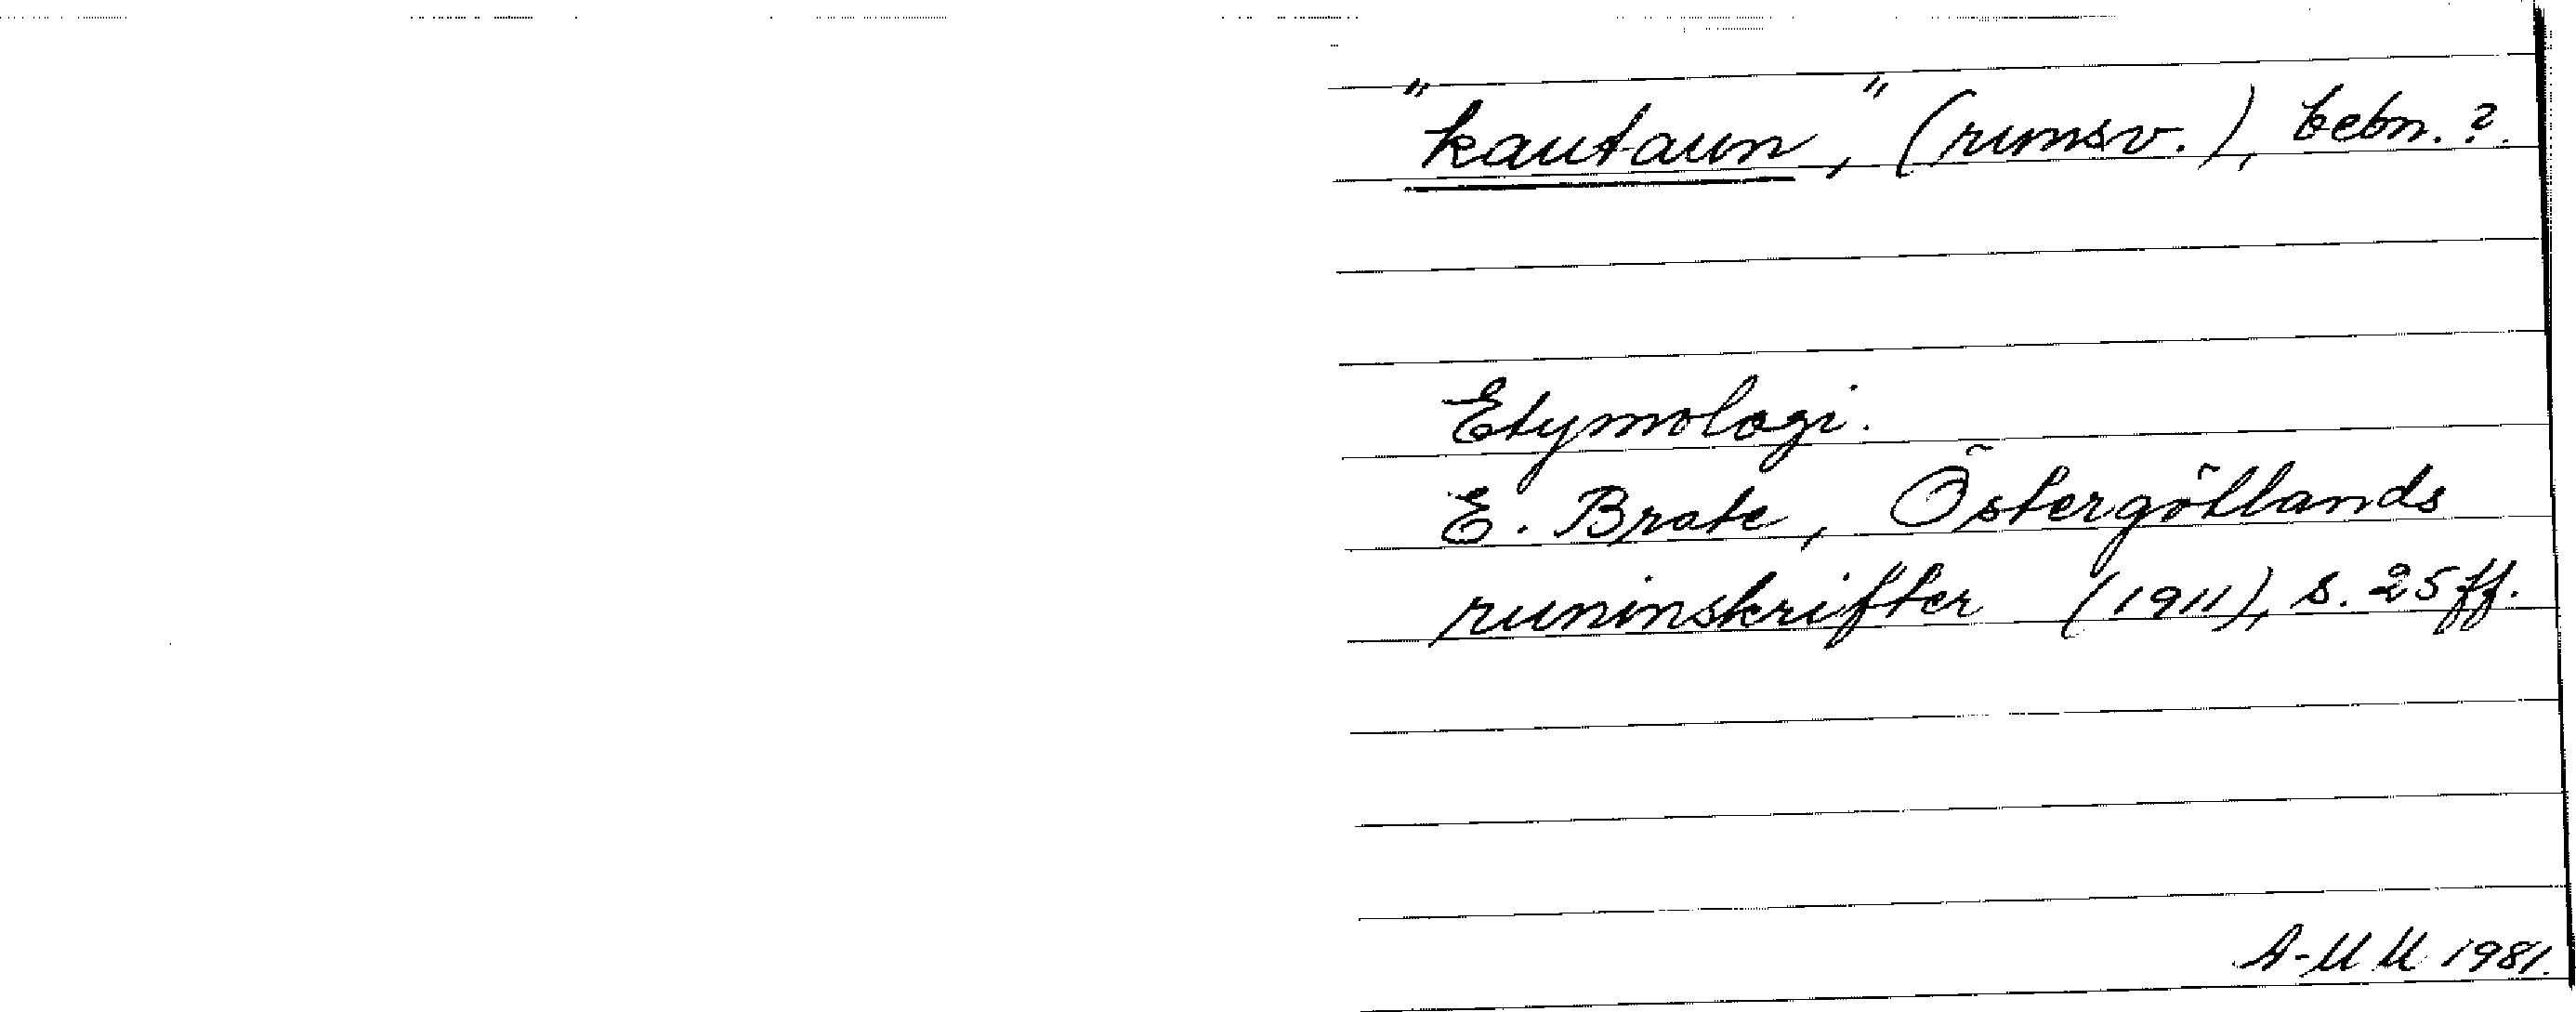 "kautaun", (runsv.), bebn.?.
Etymologi.
E. Brate, Östergötlands
runinskrifter (1911), s. 25 ff.
A-MM 1981.